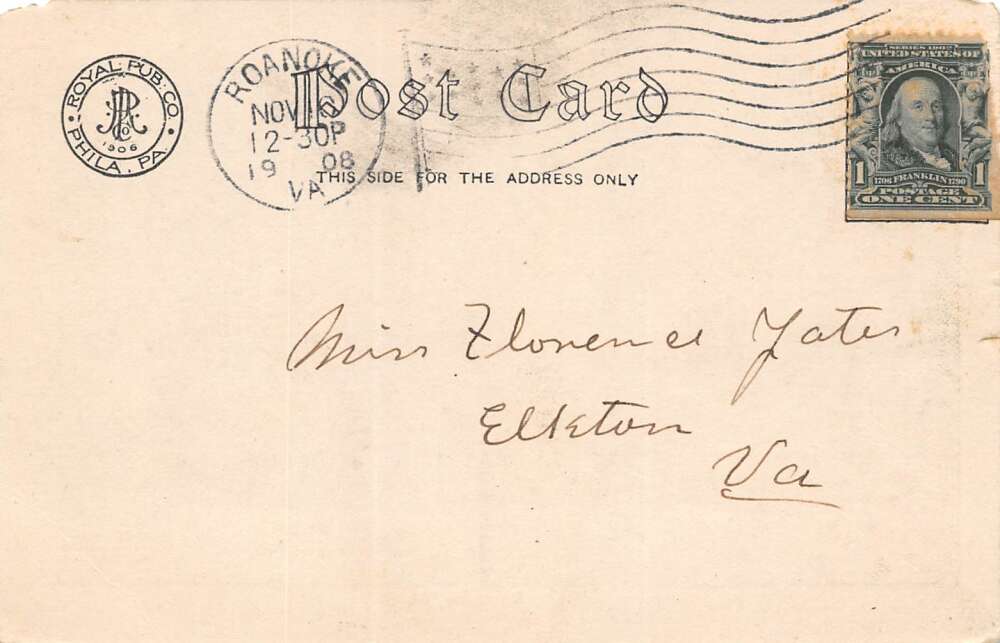 ROYAL PUB. CO.
PHILA, PA.
Co
1906
ROANOKE
NOV
12-30P
19 08
VA
Post Card
THIS SIDE FOR THE ADDRESS ONLY
SERIES 1902
UNITED STATES OF
AMERICA
1706 FRANKLIN 1790
1 POSTAGE 1
ONE CENT
Miss Florence Yates
Elkton
Va